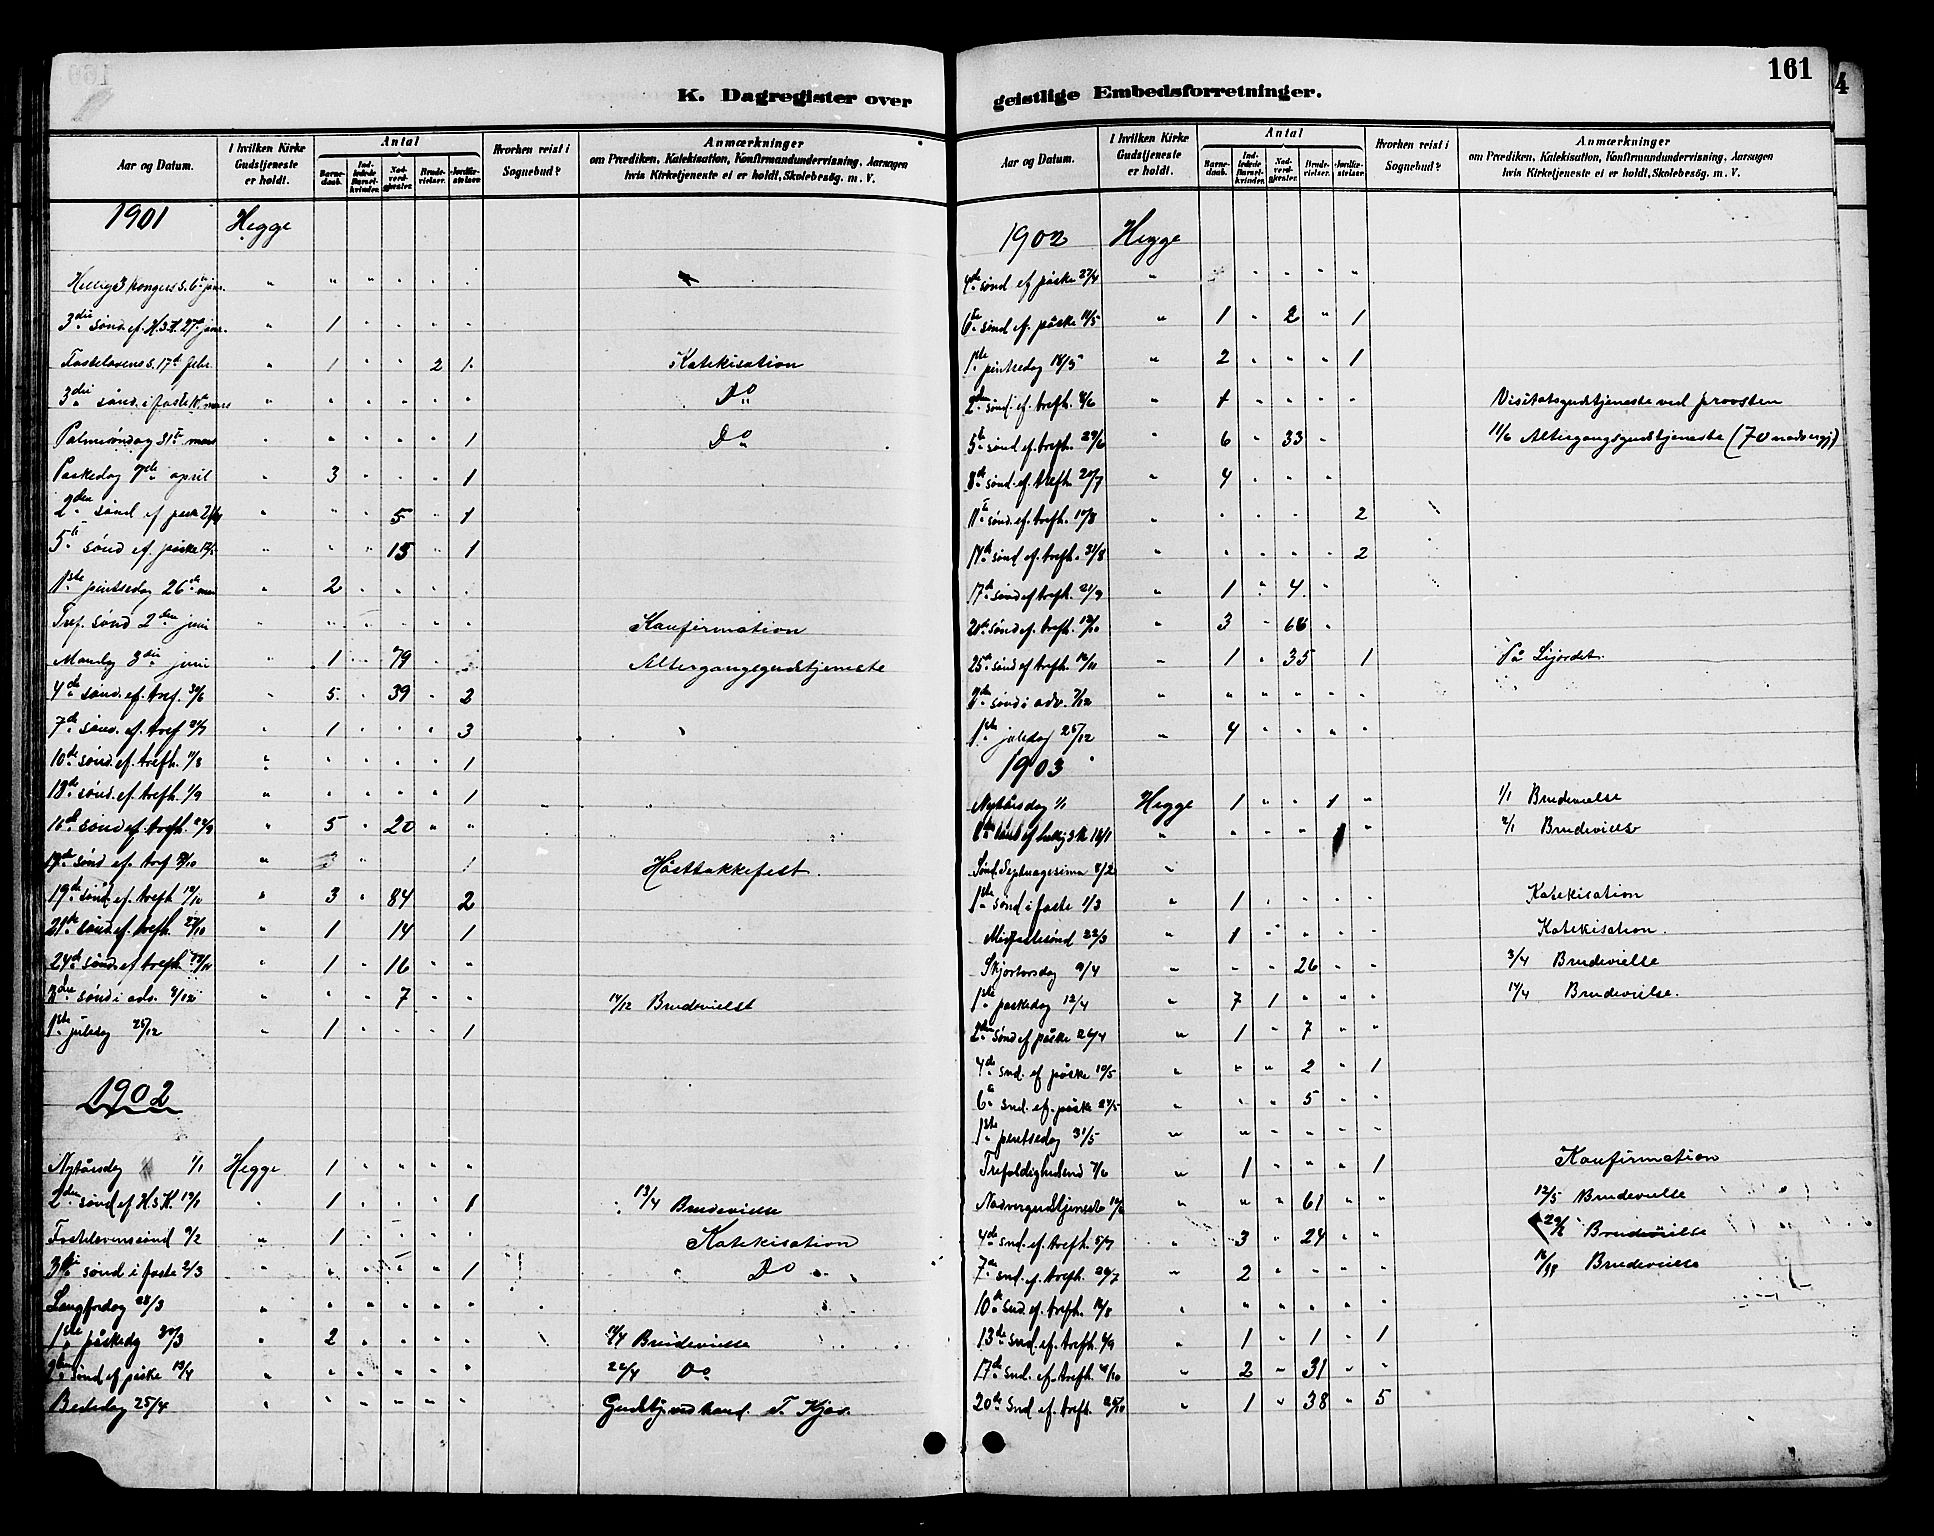 K. Dagregister over
Aar og Datum. I hvilken Kirke Gudstjeneste er holdt. Antal Barnedaab. Indledede Barselkvinder. Nadverdgjester. Brudevielser. Jordfæstelser. Hvorhen reist i Sognebud? Anmærkninger om Prædiken, Katekisation, Konfirmandundervisning, Aarsagen hvis Kirketjeneste ei er holdt, Skolebesøg. m. V.
1901 Hegge
Hellig 3 kongers s. 6te janr. " " " " " "
3die sønd. ef. H. 3 K. 27de janr. " 1 " " " "
Fastelavens s. 17de febr. " 1 " " 2 1 Katekisation
3die sønd. i faste 10de mars " " " " " " Do
Palmesøndag 31te mars " " " " " 1 Do
Paskedag 7de april " 3 " " " 1
2den sønd ef paske 21/4 " " " 5 " 1
5te sønd ef. påske 12/5 " " " 15 " 1
1ste pintsedag 26de mai " 2 " " " "
Tref. sønd 2den juni " " " " " " Konfirmation
Mandag 3die juni " 1 " 79 " " Altergangsgudstjeneste
4de sønd. ef. tref. 30/6 " 5 " 39 " 2
7de sønd. ef. tref 21/7 " 1 " " " 3
10de sønd. ef. trefh. 11/8 " " " " " 1
13de sønd. ef. trefh. 1/9 " " " " " 1
16de sønd ef. trefh. 22/9 " 5 " 20 " "
sønd. ef. tref /10 " 3 " " 1 Høsttakkefest
19de sønd. ef. trefh 13/10 " 3 " 84 2
21de sønd. ef. trefh. 27/10 " 1 14 1
24de sønd. ef. trefh " 1 " 16 " "
sønd i adv. 8/12 " " " 7 " " 14/12 Brudevielse
1ste juledag 25/12 " 1 " " " 1
1902
Nytårsdag 1/1 Hegge 1 " " " "
2den sønd ef H. 3 K. 19/1 " 1 " " " 1 13/4 Brudevielse
Fastelavensønd 9/2 " 1 " " " " Katekisation
3die sønd i faste 2/3 " " " " " 1 " Do
Langfredag 28/3 " " " " " "
1ste påskedg 30/3 " 2 " " " " Brudevielse
2den sønd ef påske 13/4 " " " " " " 22/4 Do
Bededag 25/4 " " " " " " Gudstj. ved kand. T. Kjos.
geistlige Embedsforretninger.
161
4
Aar og Datum. I hvilken Kirke Gudstjeneste er holdt. Antal Barnedaab. Indledede Barselkvinder. Nadverdgjester. Brudevielser. Jordfæstelser. Hvorhen reist i Sognebud? Anmærkninger om Prædiken, Katekisation, Konfirmandundervisning, Aarsagen hvis Kirketjeneste ei er holdt, Skolebesøg. m. V.
1902 Hegge
4de sønd ef påske 27/4 " " " " " "
6te sønd ef. påske 11/5 " 1 " 2 " 1
1ste pintsedag 18/5 " 2 " " " 1
2den sønd. ef. trefh. 8/6 " 1 " " " " Visitatsgudstjeneste ved provsten
5te sønd ef. trefh. 29/6 " 6 " 33 " 11/6 Altergangsgudstjeneste (70 nadvergj)
8de sønd. ef. trefh. 20/7 " 4 " " "
11te sønd. ef. trefh. 10/8 " " " " 2
14de sønd ef. trefh. 31/8 " " " " " 2
17de sønd ef trefh. 21/9 " 1 " 4 "
20de sønd ef. trefh. 12/10 " 3 " 66 "
25de sønd ef. trefh. 16/11 " 1 " 35 1 På Lijordet.
2den sønd i adv. 7/12 " " " " " "
1ste juledag 25/12 " 4 " " " "
1903
Nytårsdag 1/1 Hegge 1 " " 1 " 1/1 Brudevielse
18/1 " " " " " 2/1 Brudevielse
Sønd. Septuagesima 8/2 "
1ste sønd i faste 1/3 " 1 " " " " Katekisation
Midfastesønd 22/3 1 " " " " Katekisation.
Skjærtorsdag 9/4 " " " 26 " " 3/4 Brudevielse
1ste påskedag 12/4 " 7 1 " " " 14/4 Brudevielse.
2den sønd ef påske 26/4 " 1 " 7 " "
4de snd. ef påske 10/5 " " " 2 " 1
6te snd. ef. påske 24/5 " " " 5 " "
1ste pintsedag 31/5 " " " " " "
Trefoldighedsnd 7/6 " 1 " " " 1 Konfirmation
Nadvergudstjeneste " " " 61 " " 12/5 Brudevielse
4de snd. ef. trefh. 5/7 " 3 " 24 " " Brudevielse
7de snd. ef. trefh. 26/7 " 2 " " " " Brudevielse
10de snd. ef. trefh. 16/8 " " " " " "
13de snd. ef. trefh. 6/9 " 1 " 1 " 1
17de snd. ef. trefh. 4/10 " 2 " 31 " "
20de snd ef. trefh. 25/10 " 1 " 38 " 5